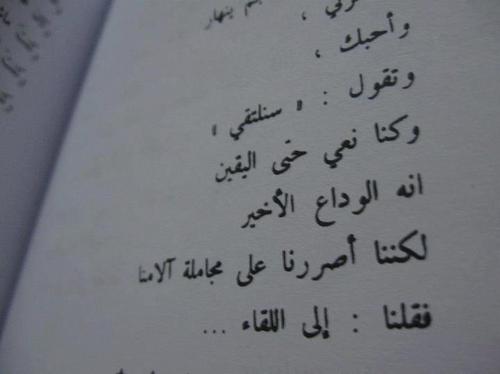 ينهار
وأحبك ،
وتقول : " سنلتقي "
وكنا نعي حتى اليقين
انه الوداع الأخير
لكننا أصررنا على مجاملة آلامنا
فقلنا : إلى اللقاء ...